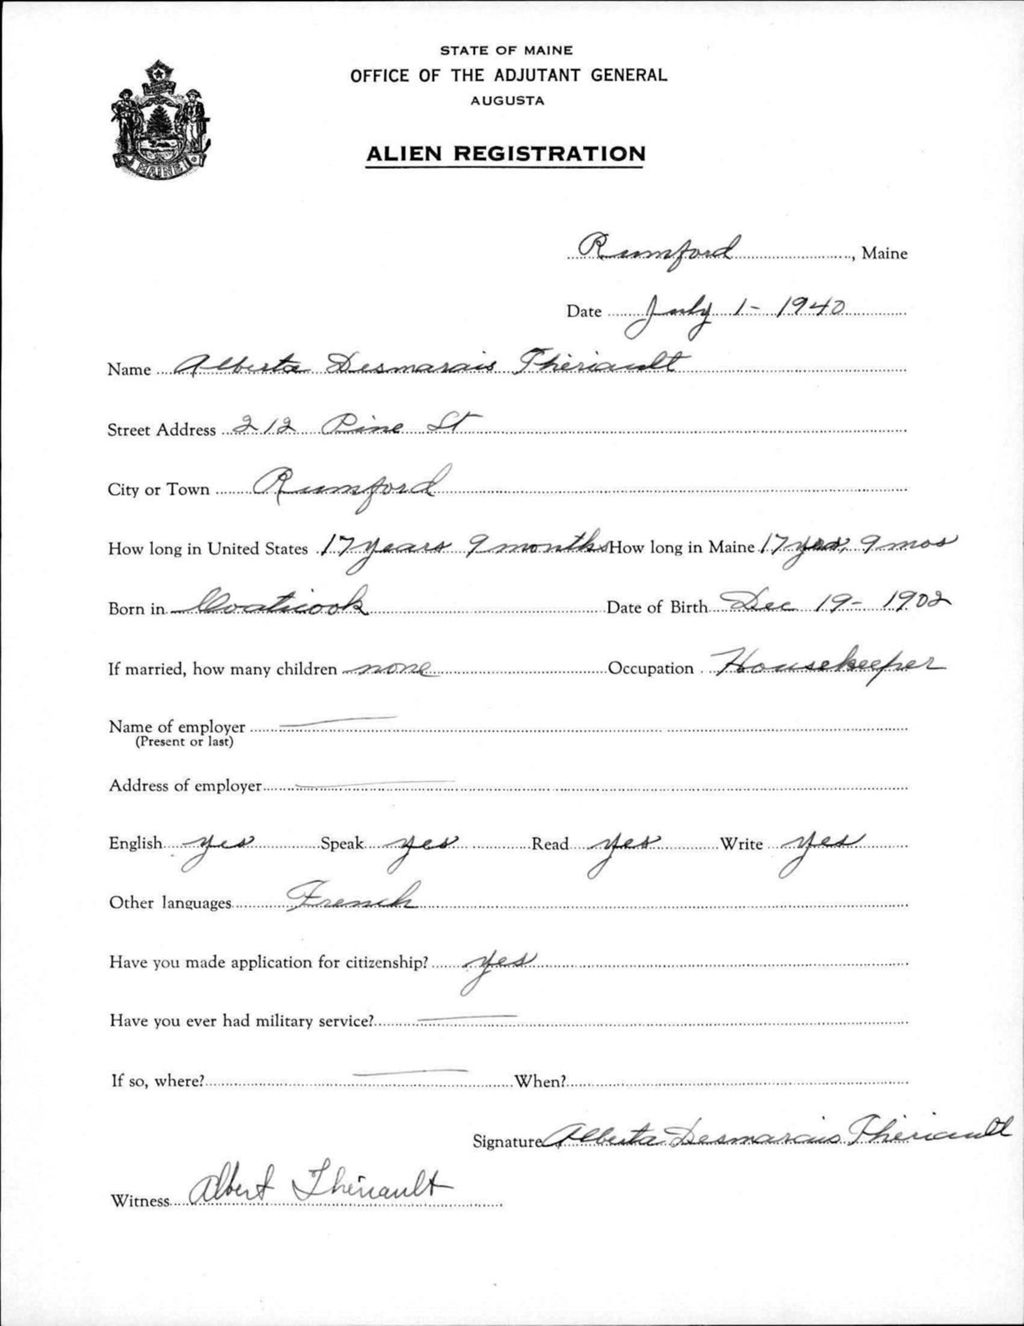 STATE OF MAINE
OFFICE OF THE ADJUTANT GENERAL
AUGUSTA
ALIEN REGISTRATION
MAINE
Rumford, Maine
Date July 1- 1940
Name Alberta Desmarais Theriault
Street Address 212 Pine St
City or Town Rumford
How long in United States 17 years 9 months How long in Maine 17 yrs, 9 mos
Born in Coaticook Date of Birth Dec 19- 1902
If married, how many children none Occupation Housekeeper
Name of employer
(Present or last)
Address of employer
English yes Speak yes Read yes Write yes
Other languages French
Have you made application for citizenship? yes
Have you ever had military service?
If so, where? When?
Signature Alberta Desmarais Theriault
Witness Albert Theriault